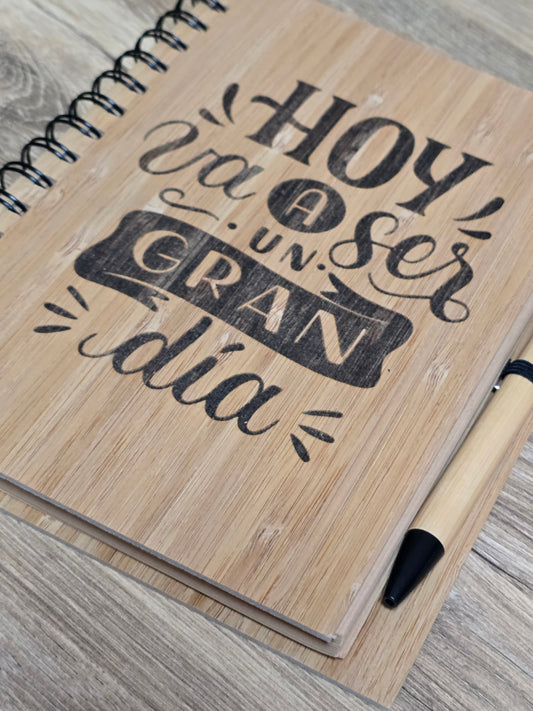 HOY
va A ser
UN
GRAN
día